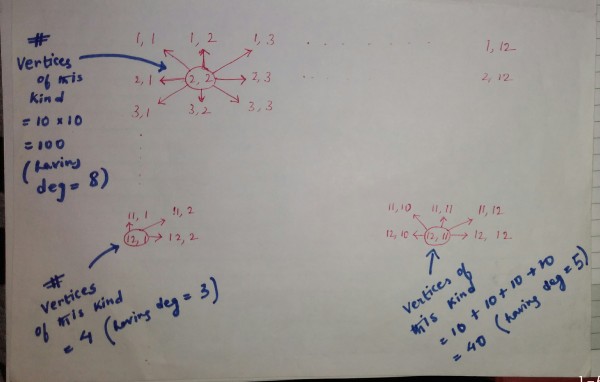 1, 1 1, 2 1, 3 . . . . . . . . 1, 12
2, 1 2, 2 2, 3 . . . . . . . . 2, 12
3, 1 3, 2 3, 3
#
Vertices
of this
kind
= 10 × 10
= 100
(having
deg = 8)
11, 1 11, 2
12, 1 12, 2
#
Vertices
of this kind
= 4 (having deg = 3)
11, 10 11, 11 11, 12
12, 10 12, 11 12, 12
Vertices of
this kind
= 10 + 10 + 10 + 10
= 40 (having deg = 5)